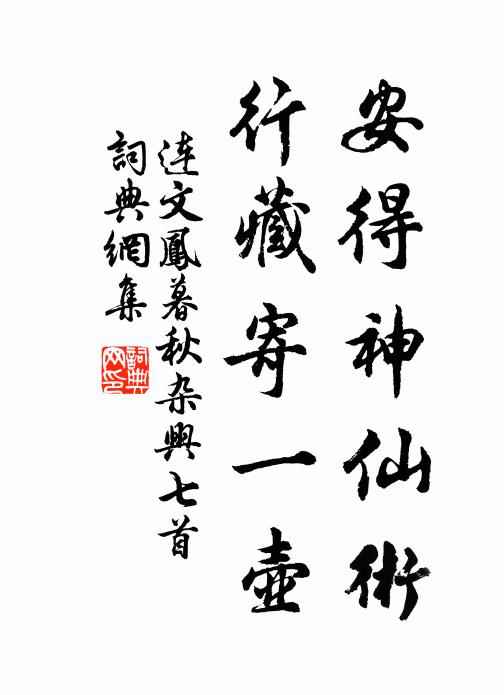 安得神仙術
行藏寄一壺
連文鳳暮秋杂興七首
詞典網集
詞典网印